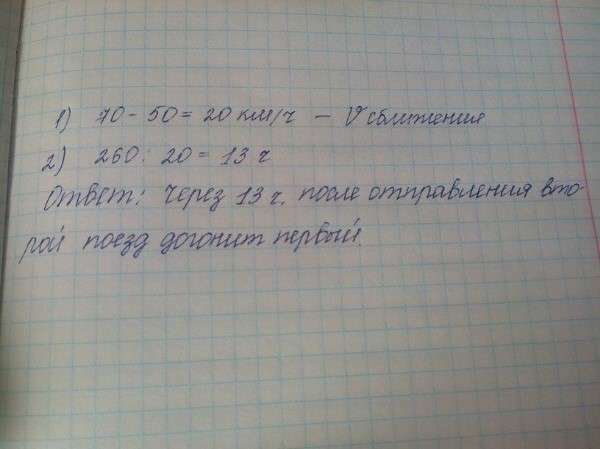 1) 70 - 50 = 20 км/ч - V сближения
2) 260 : 20 = 13 ч
Ответ: через 13 ч. после отправления вто-
рой поезд догонит первый.